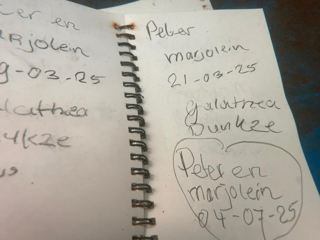 er en
arjolein
9-03-25
Peter
marjolein
21-03-25
galathea
Dunkze
Peter en
marjolein
04-07-25